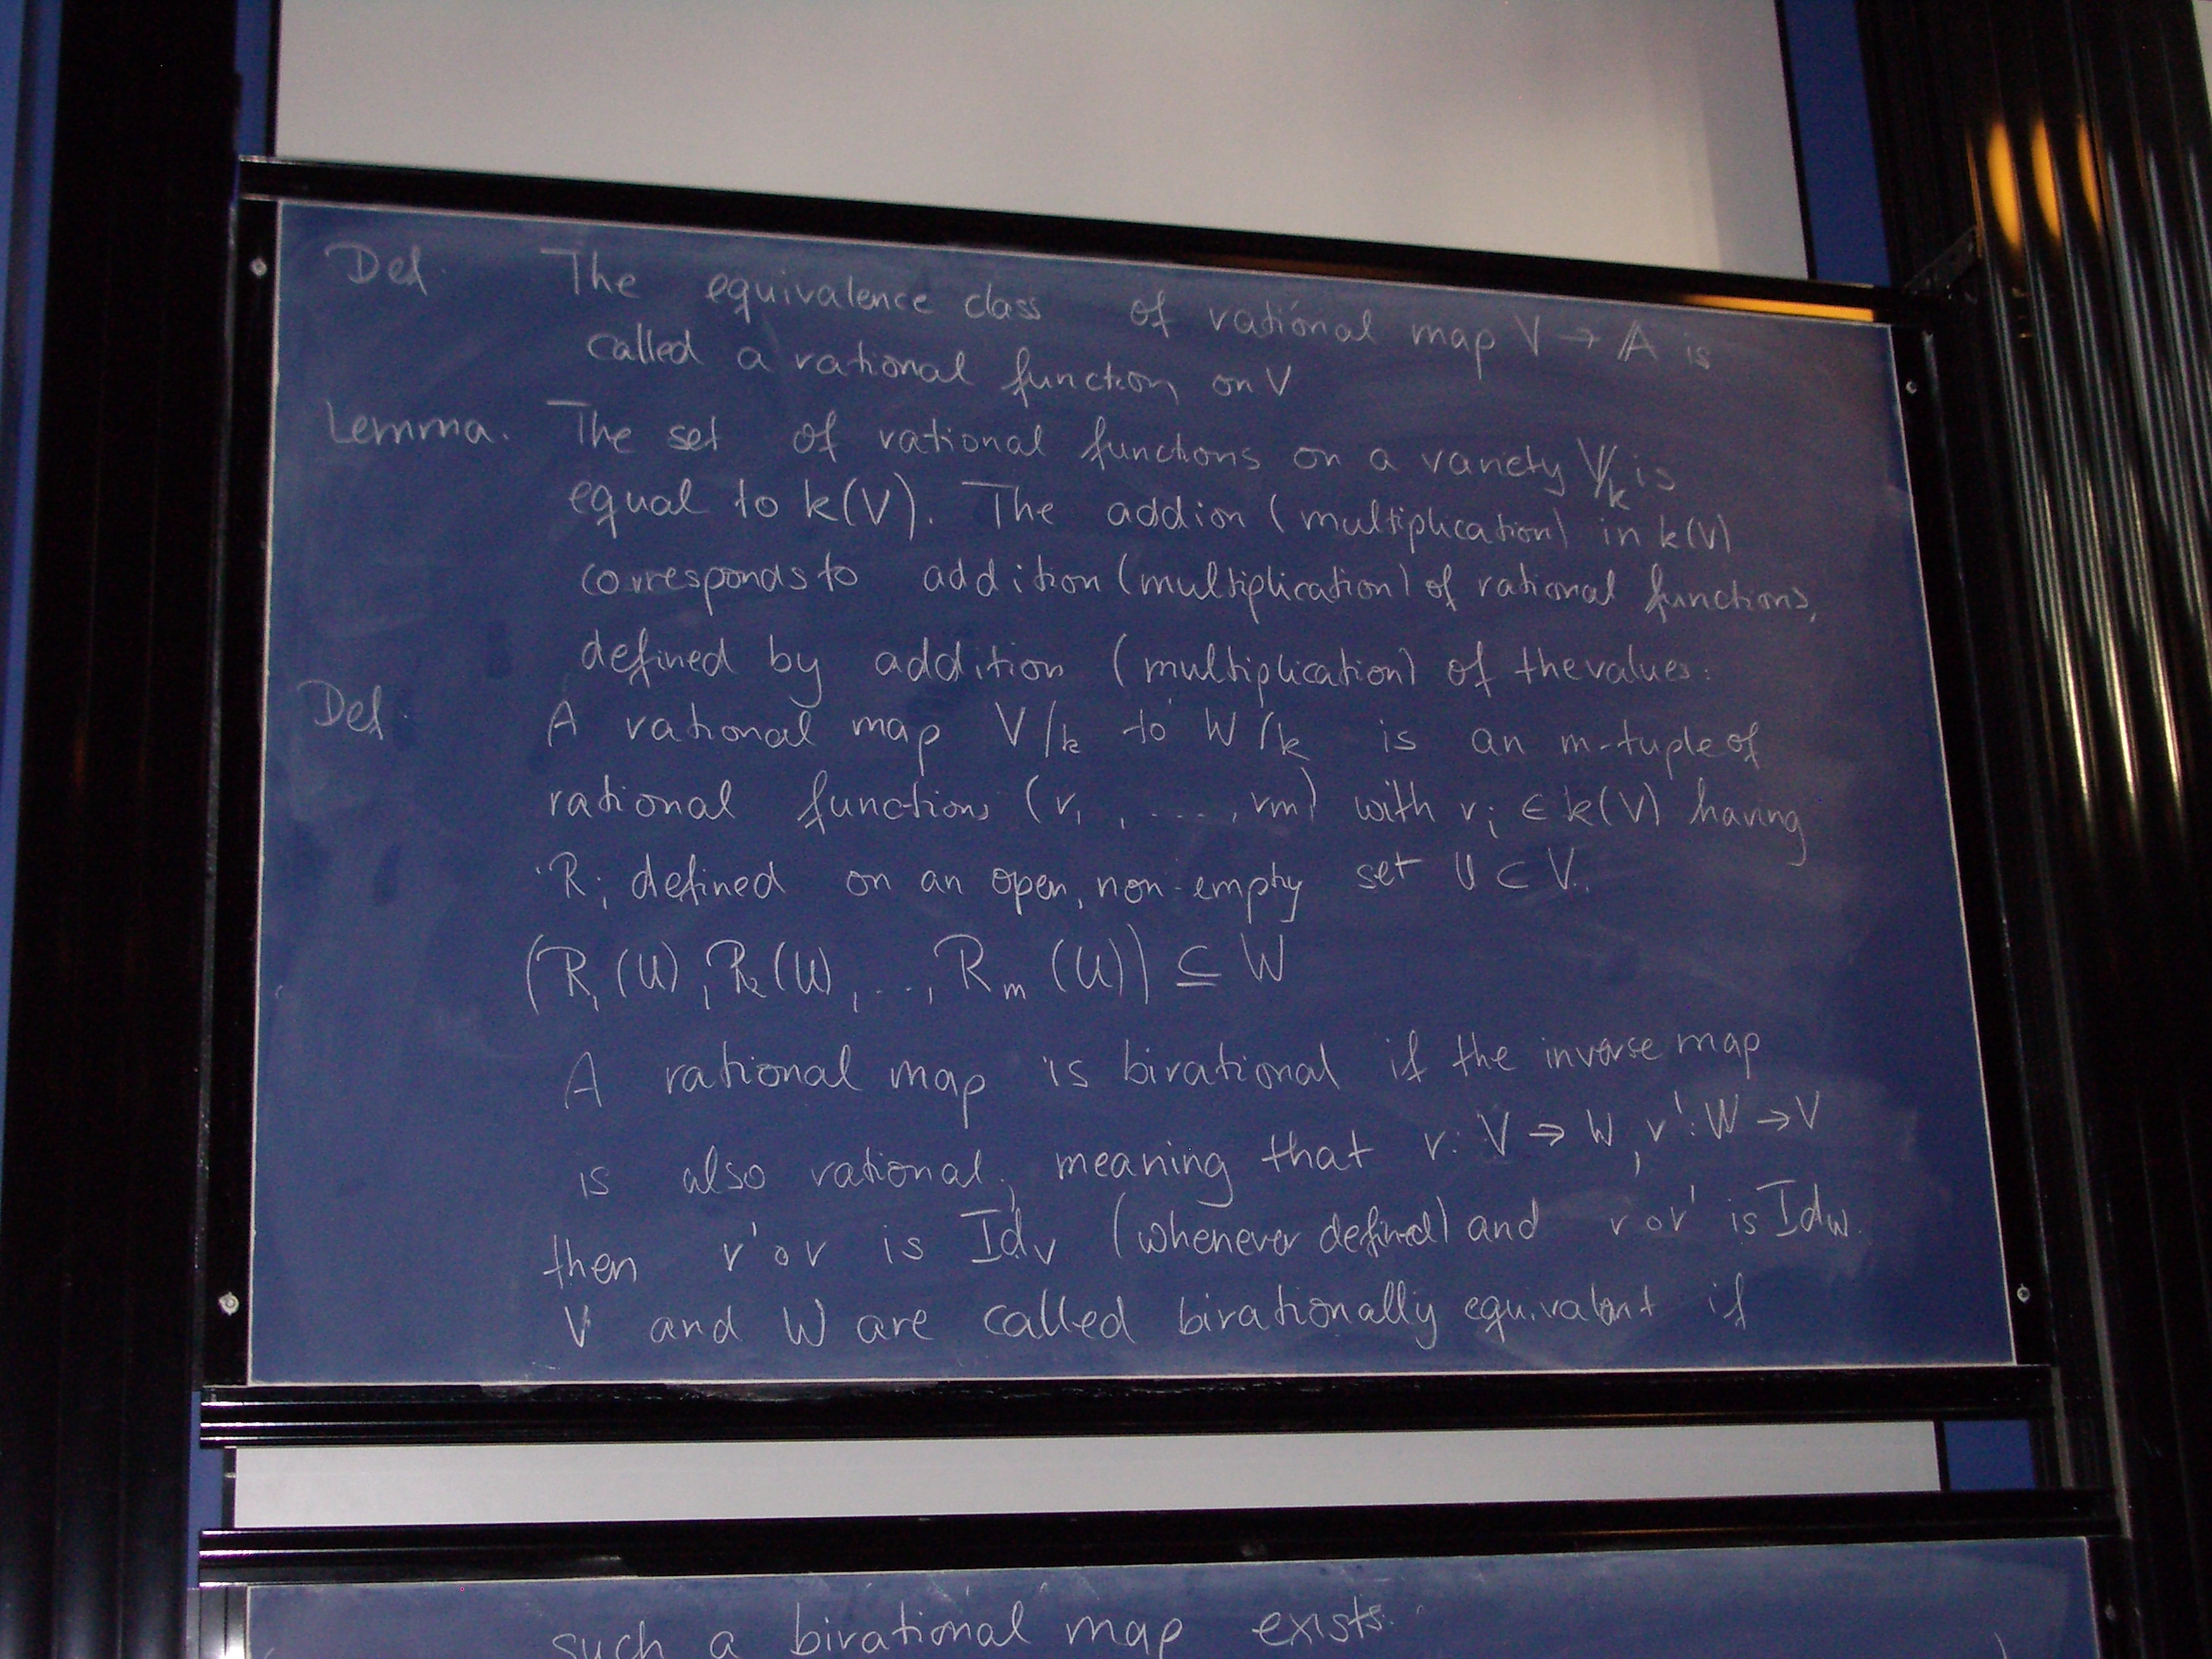 Def. The equivalence class of rational map V → 𝔸 is
called a rational function on V
Lemma. The set of rational functions on a variety V/k is
equal to k(V). The addion (multiplication) in k(V)
corresponds to addition (multiplication) of rational functions,
defined by addition (multiplication) of the values.
Def. A rational map V/k to W/k is an m-tuple of
rational functions (r₁, ...., rm) with rᵢ ∈ k(V) having
Rᵢ defined on an open, non-empty set U ⊂ V.
(R₁(U), R₂(U), ..., Rₘ(U)) ⊆ W
A rational map is birational if the inverse map
is also rational, meaning that r: V → W, r': W → V
then r'∘r is Id_V (whenever defined) and r∘r' is Id_W.
V and W are called birationally equivalent if
such a birational map exists.